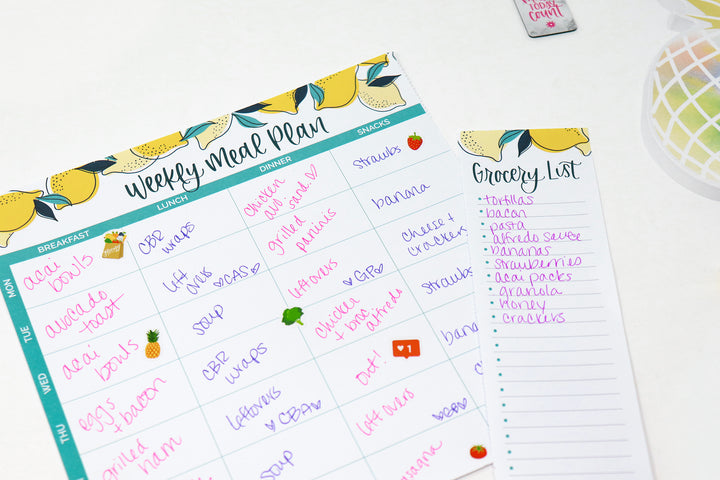 TODAY
COUNT
Weekly Meal Plan
BREAKFAST
LUNCH
DINNER
SNACKS
MON
acai
bowls
CBR
wraps
chicken
avo.
sand.
strawbs
TUE
avocado
toast
left
overs
CAS
grilled
paninis
banana
WED
acai
bowls
soup
leftovers
GP
cheese +
crackers
THU
eggs
+ bacon
CBR
wraps
chicken
+ broc
alfredo
strawbs
grilled
ham
leftovers
CBA
out!
1
banana
soup
leftovers
Grocery List
tortillas
bacon
pasta
alfredo sauce
bananas
strawberries
acai packs
granola
Honey
crackers